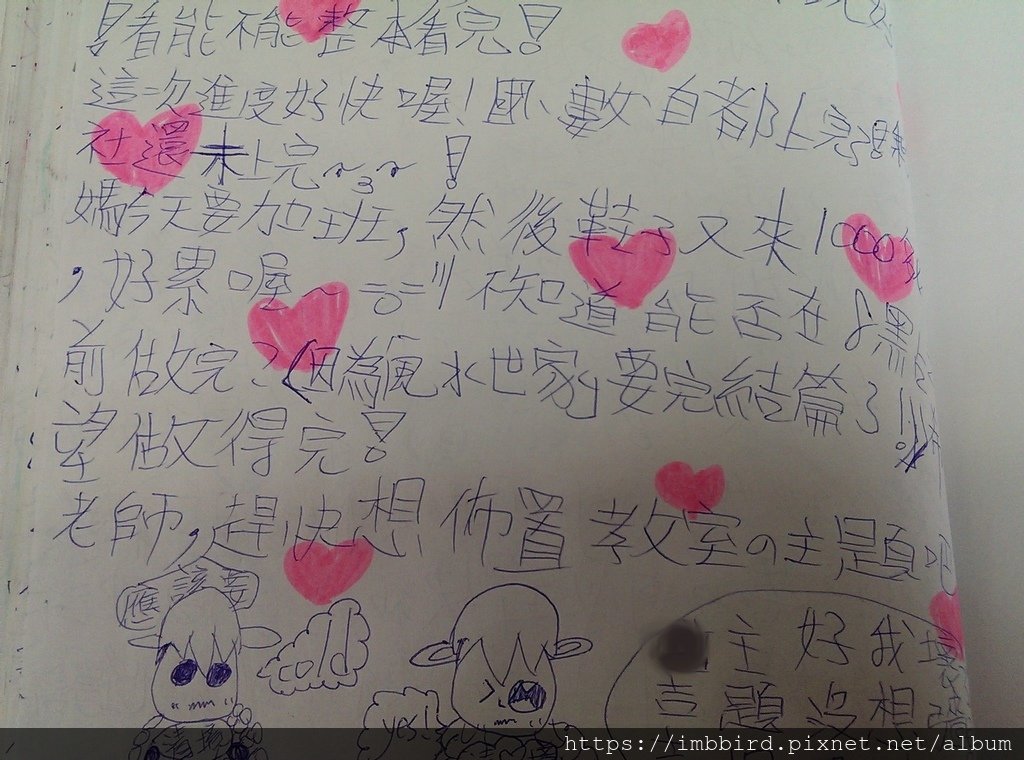 !看能不能整本看完!
這次進度好快喔!國、數、自都上完
社還未上完~3~!
媽今天要加班,然後鞋子又來1000多
,好累喔~=o=||| 不知道能否在8點
前做完?(因為『風水世家』要完結篇了!!
望做得完!
老師,趕快想佈置教室の主題吧
應該
cold
yes!
主 好 我
喜 題 沒 想
https://imbbird.pixnet.net/album